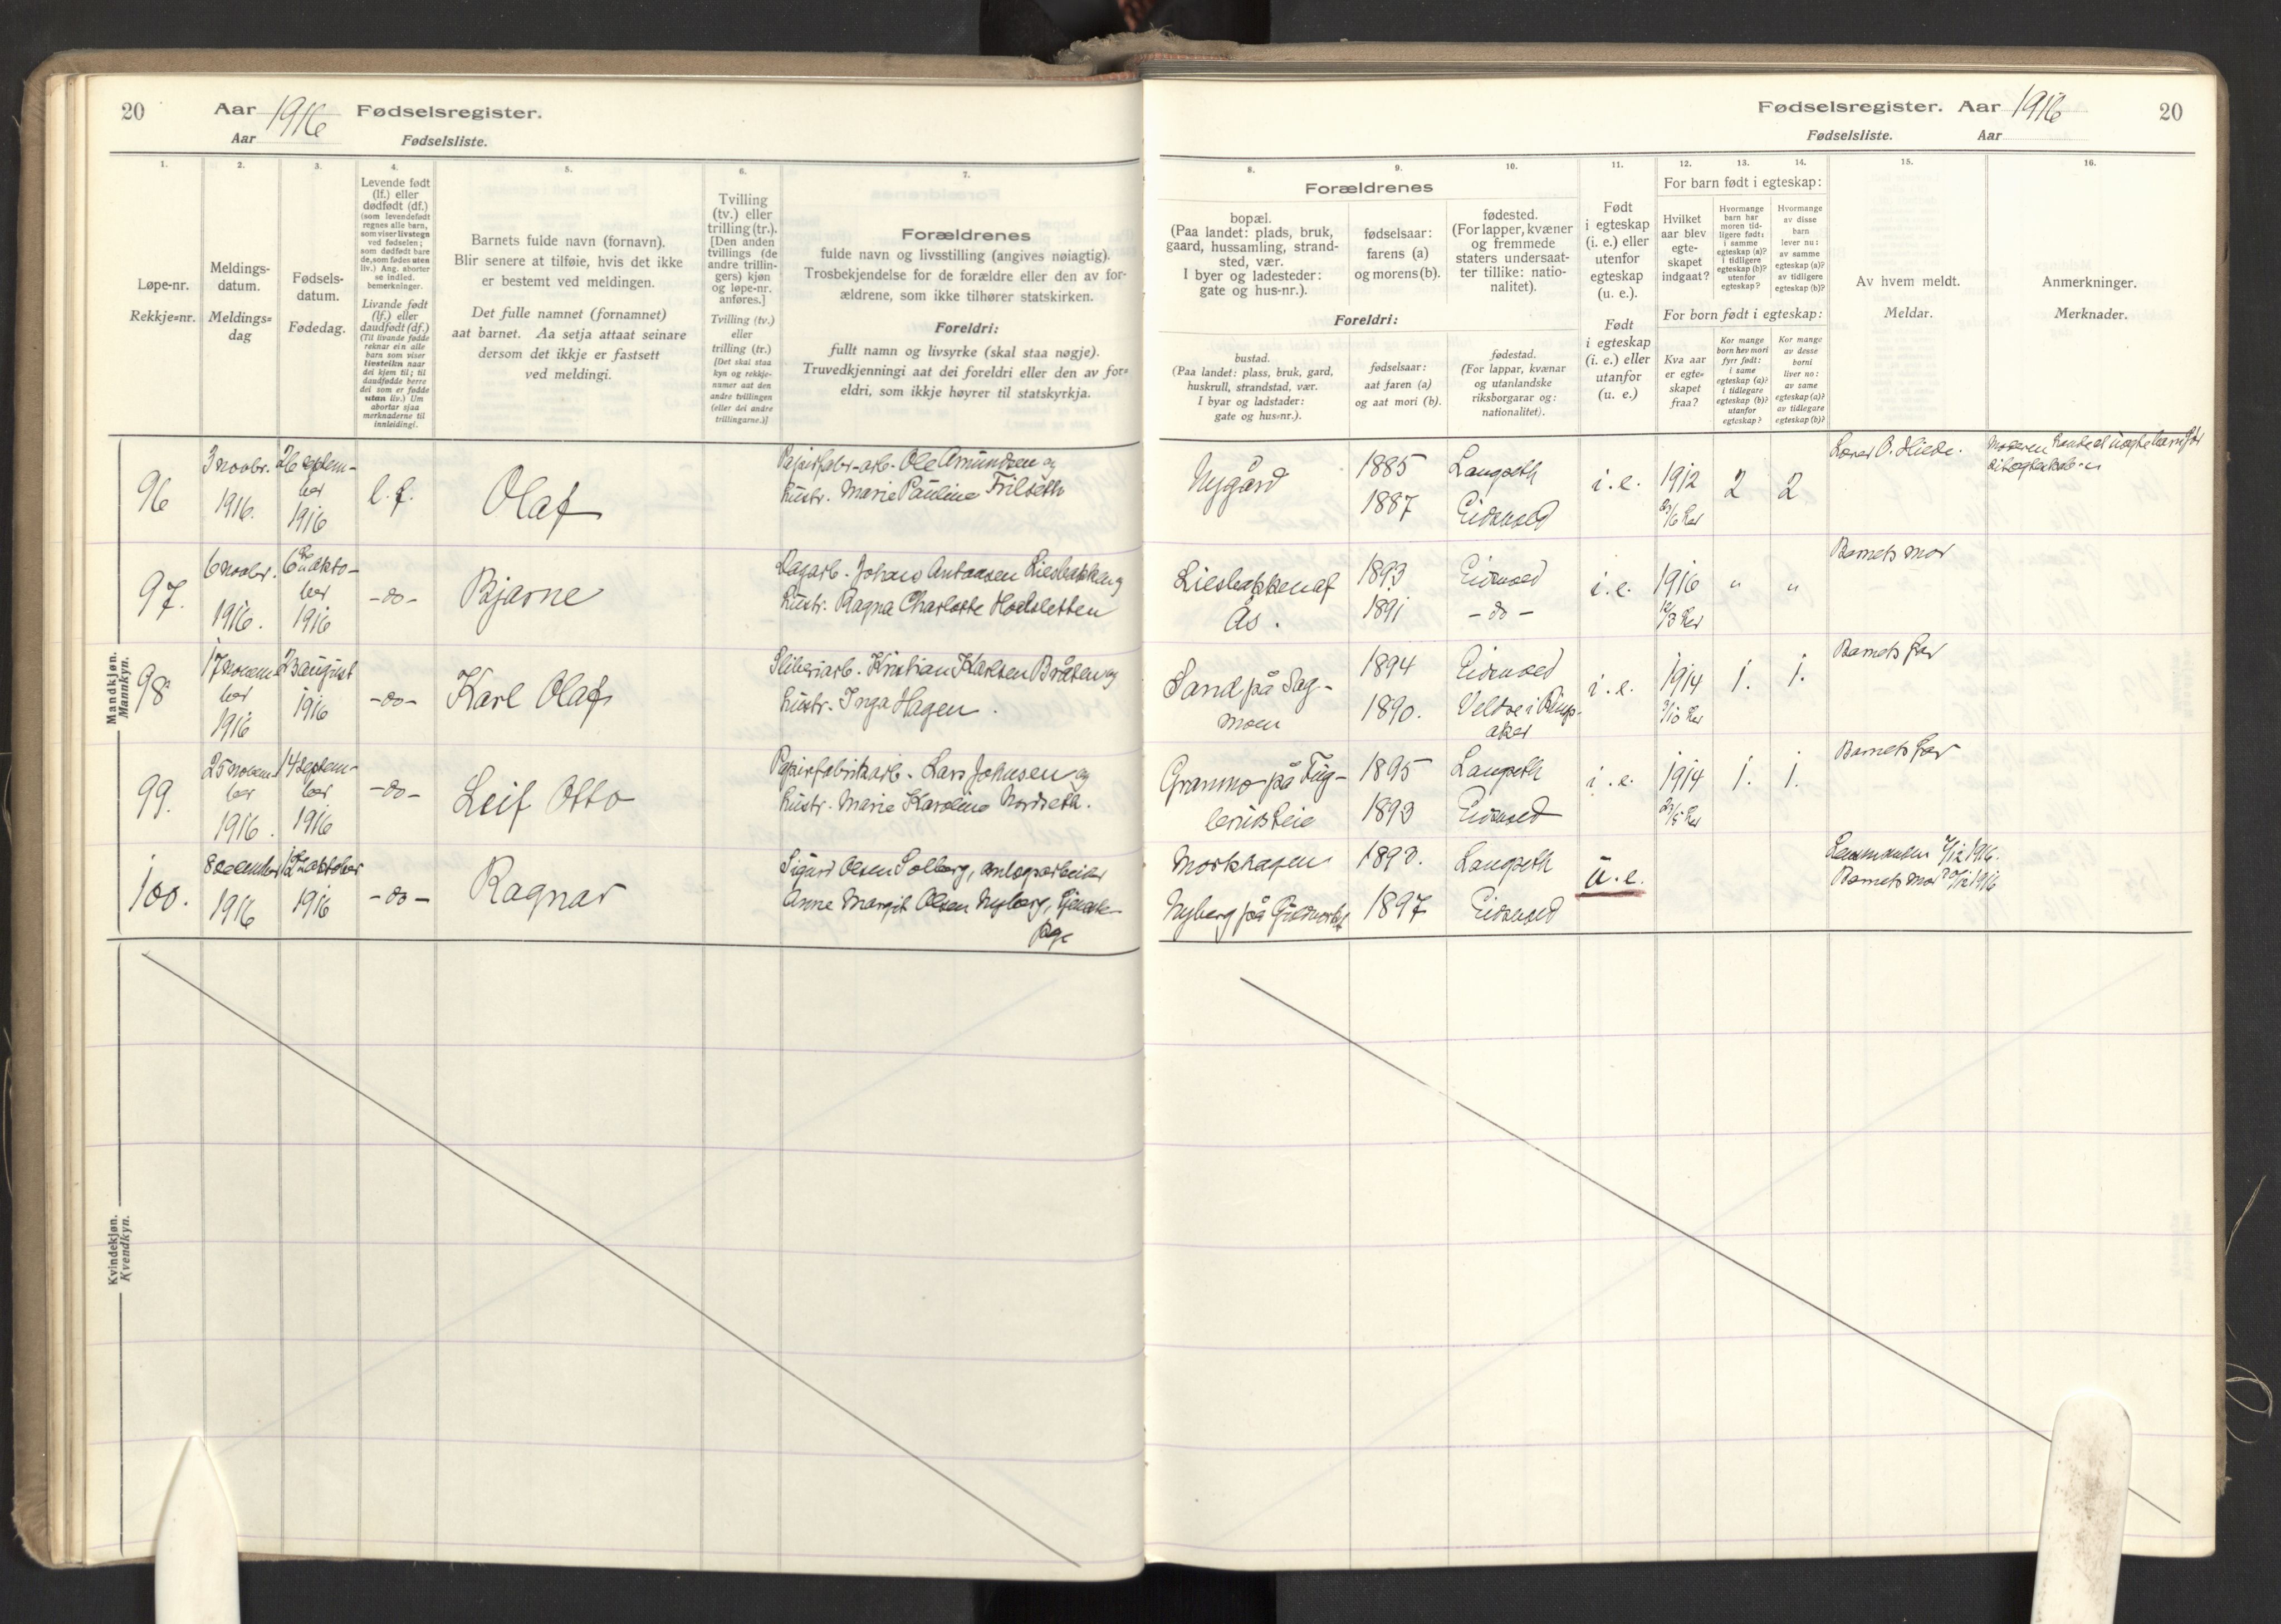 20
Aar 1916 Fødselsregister.
Aar
Fødselsliste.
1.
2.
3.
4.
5.
6.
7.
Løpe-nr.
Rekkje=nr.
Meldings-
datum.
Meldings=
dag
Fødsels-
datum.
Fødedag.
Levende født
(lf.) eller
dødfødt (df.)
(som levendefødt
regnes alle barn,
som viser livstegn
ved fødselen;
som dødfødt bare
de, som fødes uten
liv.) Ang. aborter
se indled.
bemerkninger.
Livande født
(lf.) eller
daudfødt (df.)
(Til livande fødde
reknar ein alle
barn som viser
livsteikn naar
dei kjem til; til
daudfødde berre
dei som er fødde
utan liv.) Um
abortar sjaa
merknaderne til
innleidingi.
Barnets fulde navn (fornavn).
Blir senere at tilføie, hvis det ikke
er bestemt ved meldingen.
Det fulle namnet (fornamnet)
aat barnet. Aa setja attaat seinare
dersom det ikkje er fastsett
ved meldingi.
Tvilling
(tv.) eller
trilling (tr.).
[Den anden
tvillings (de
andre trillin-
gers) kjøn
og løpe-nr.
anføres.]
Tvilling (tv.)
eller
trilling (tr.)
[Det skal staa
kyn og rekkje-
numer aat den
andre tvillingen
(eller dei andre
trillingarne.)]
Forældrenes
fulde navn og livsstilling (angives nøiagtig).
Trosbekjendelse for de forældre eller den av for-
ældrene, som ikke tilhører statskirken.
Foreldri:
fullt namn og livsyrke (skal staa nøgje).
Truvedkjenningi aat dei foreldri eller den av for=
eldri, som ikkje høyrer til statskyrkja.
Mandkjøn.
Mannkyn.
96
3 novbr.
1916.
26 septem-
ber
1916
l. f.
Olaf
Papirfabr-arb. Ole Amundsen og
hustr. Marie Pauline Trilseth
97.
6 novbr.
1916.
6 okto-
ber
1916
-do-
Bjarne
Dagarb. Johans Antonsen Liesbakken og
hustr. Ragna Charlotte Hodsletten
98
17 novem
ber
1916
23 august
1916
-do-
Karl Olaf
Sliberiarb. Kristian Karlsen Bråten og
hustr. Inga Hagen.
99.
25 novem
ber
1916.
14 septem-
ber
1916
-do-
Leif Otto
Papirfabrikarb. Lars Johnsen og
hustr. Marie Karoline Nordseth.
100.
8 december
1916
12 oktober
1916
-do-
Ragnar
Sigurd Olsen Solberg, anlegsarbeider
Anne Margit Olsen Nyberg, tjeneste-
pige
Kvindekjøn.
Kvendkyn.
Fødselsregister. Aar 1916
20
Fødselsliste.
Aar
8.
9.
10.
11.
12.
13.
14.
15.
16.
Forældrenes
bopæl.
(Paa landet: plads, bruk,
gaard, hussamling, strand-
sted, vær.
I byer og ladesteder:
gate og hus-nr.).
fødselsaar:
farens (a)
og morens (b).
fødested.
(For lapper, kvæner
og fremmede
staters undersaat-
ter tillike: natio-
nalitet).
Foreldri:
bustad.
(Paa landet: plass, bruk, gard,
huskrull, strandstad, vær.
I byar og ladstader:
gate og hus=nr.).
fødselsaar:
aat faren (a)
og aat mori (b).
fødestad.
(For lappar, kvænar
og utanlandske
riksborgarar og:
nationalitet).
Født
i egteskap
(i. e.) eller
utenfor
egteskap
(u. e.).
Født
i egteskap
(i. e.) eller
utanfor
(u. e.)
For barn født i egteskap:
Hvilket
aar blev
egte-
skapet
indgaat?
Hvormange
barn har
moren tid-
ligere født:
i samme
egteskap (a)?
i tidligere
egteskap (b)?
utenfor
egteskap?
Hvormange
av disse
barn
lever nu:
av samme
egteskap (a)?
av tidligere
egteskap (b)?
For born født i egteskap:
Kva aar
er egte=
skapet
fraa?
Kor mange
born hev mori
fyrr født:
i same
egteskap (a)?
i tidlegare
egteskap (b)?
utanfor
egteskap?
Kor mange
av desse
borni
liver no:
av same
egteskap (a)?
av tidlegare
egteskap (b)?
Av hvem meldt.
Meldar.
Anmerkninger.
Merknader.
Nygård
1885
1887
Langseth
Eidsvold
i. e.
1912
2
2
Lærer O. Hiede.
Moderen havde et uegte barn før
Liesbakken af
Ås.
1893
1891
Eidsvold
-do-
i. e.
1916
"
"
Barnets mor
Sand på Sag-
moen
1894
1890.
Eidsvold
Veldre i Rings-
aker
i. e.
1914
1.
1.
Barnets far
Granmo på Fug-
leruds eie
1895
1893
Langseth
Eidsvold
i. e.
1914
1.
1.
Barnets far
Morkhagen
Nyberg på Guldverket
1893.
1897
Langseth
Eidsvold
u. e.
Lensmanden 7/12 1916.
Barnets mor 20/12 1916